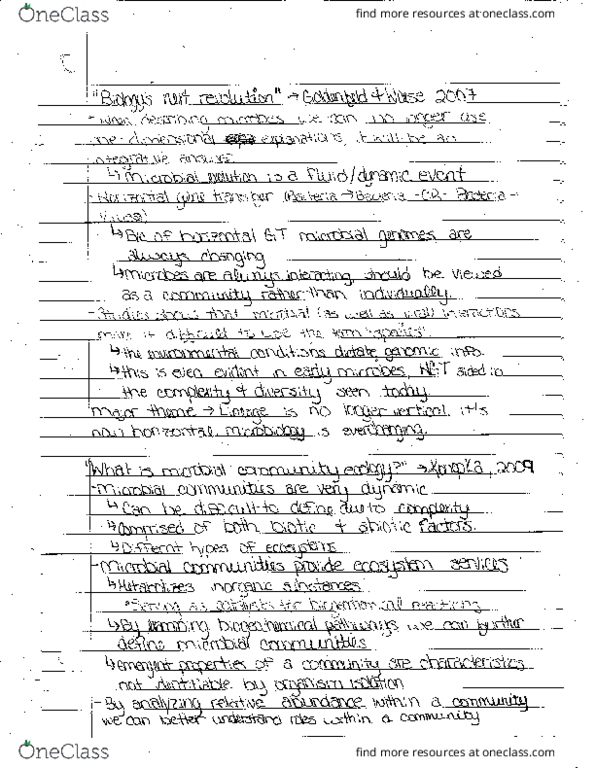 OneClass
find more resources at oneclass.com
"Biology's next revolution" → Goldenfeld & Woese 2007
- When describing microbes we can no longer use
one-dimensional explanations, it will be an
integrative answer
↳ Microbial evolution is a fluid/dynamic event
- Horizontal gene transfer (Bacteria → Bacteria -OR- Bacteria -
Viruses)
↳ B/c of horizontal GT microbial genomes are
always changing
↳ microbes are always interacting, should be viewed
as a community rather than individually.
- Studies show that microbial (as well as interactions
make it difficult to use the term "species"
↳ the environmental conditions dictate genomic info.
↳ this is even evident in early microbes, HGT aided in
the complexity & diversity seen today
major theme → Lineage is no longer vertical, it's
now horizontal, microbiology is everchanging.
"What is microbial community ecology?" → Konopka, 2009
- Microbial communities are very dynamic
↳ Can be difficult to define due to complexity
↳ Comprised of both biotic & abiotic factors.
↳ Different types of ecosystems
- Microbial communities provide ecosystem services
↳ Metabolizes inorganic substances
*Serving as catalysts for biogeochemical reactions
↳ By biogeochemical pathways we can further
define microbial communities
↳ emergent properties of a community are characteristics
not identifiable by organism isolation
- By analyzing relative abundance within a community
we can better understand roles within a community
OneClass
find more resources at oneclass.com